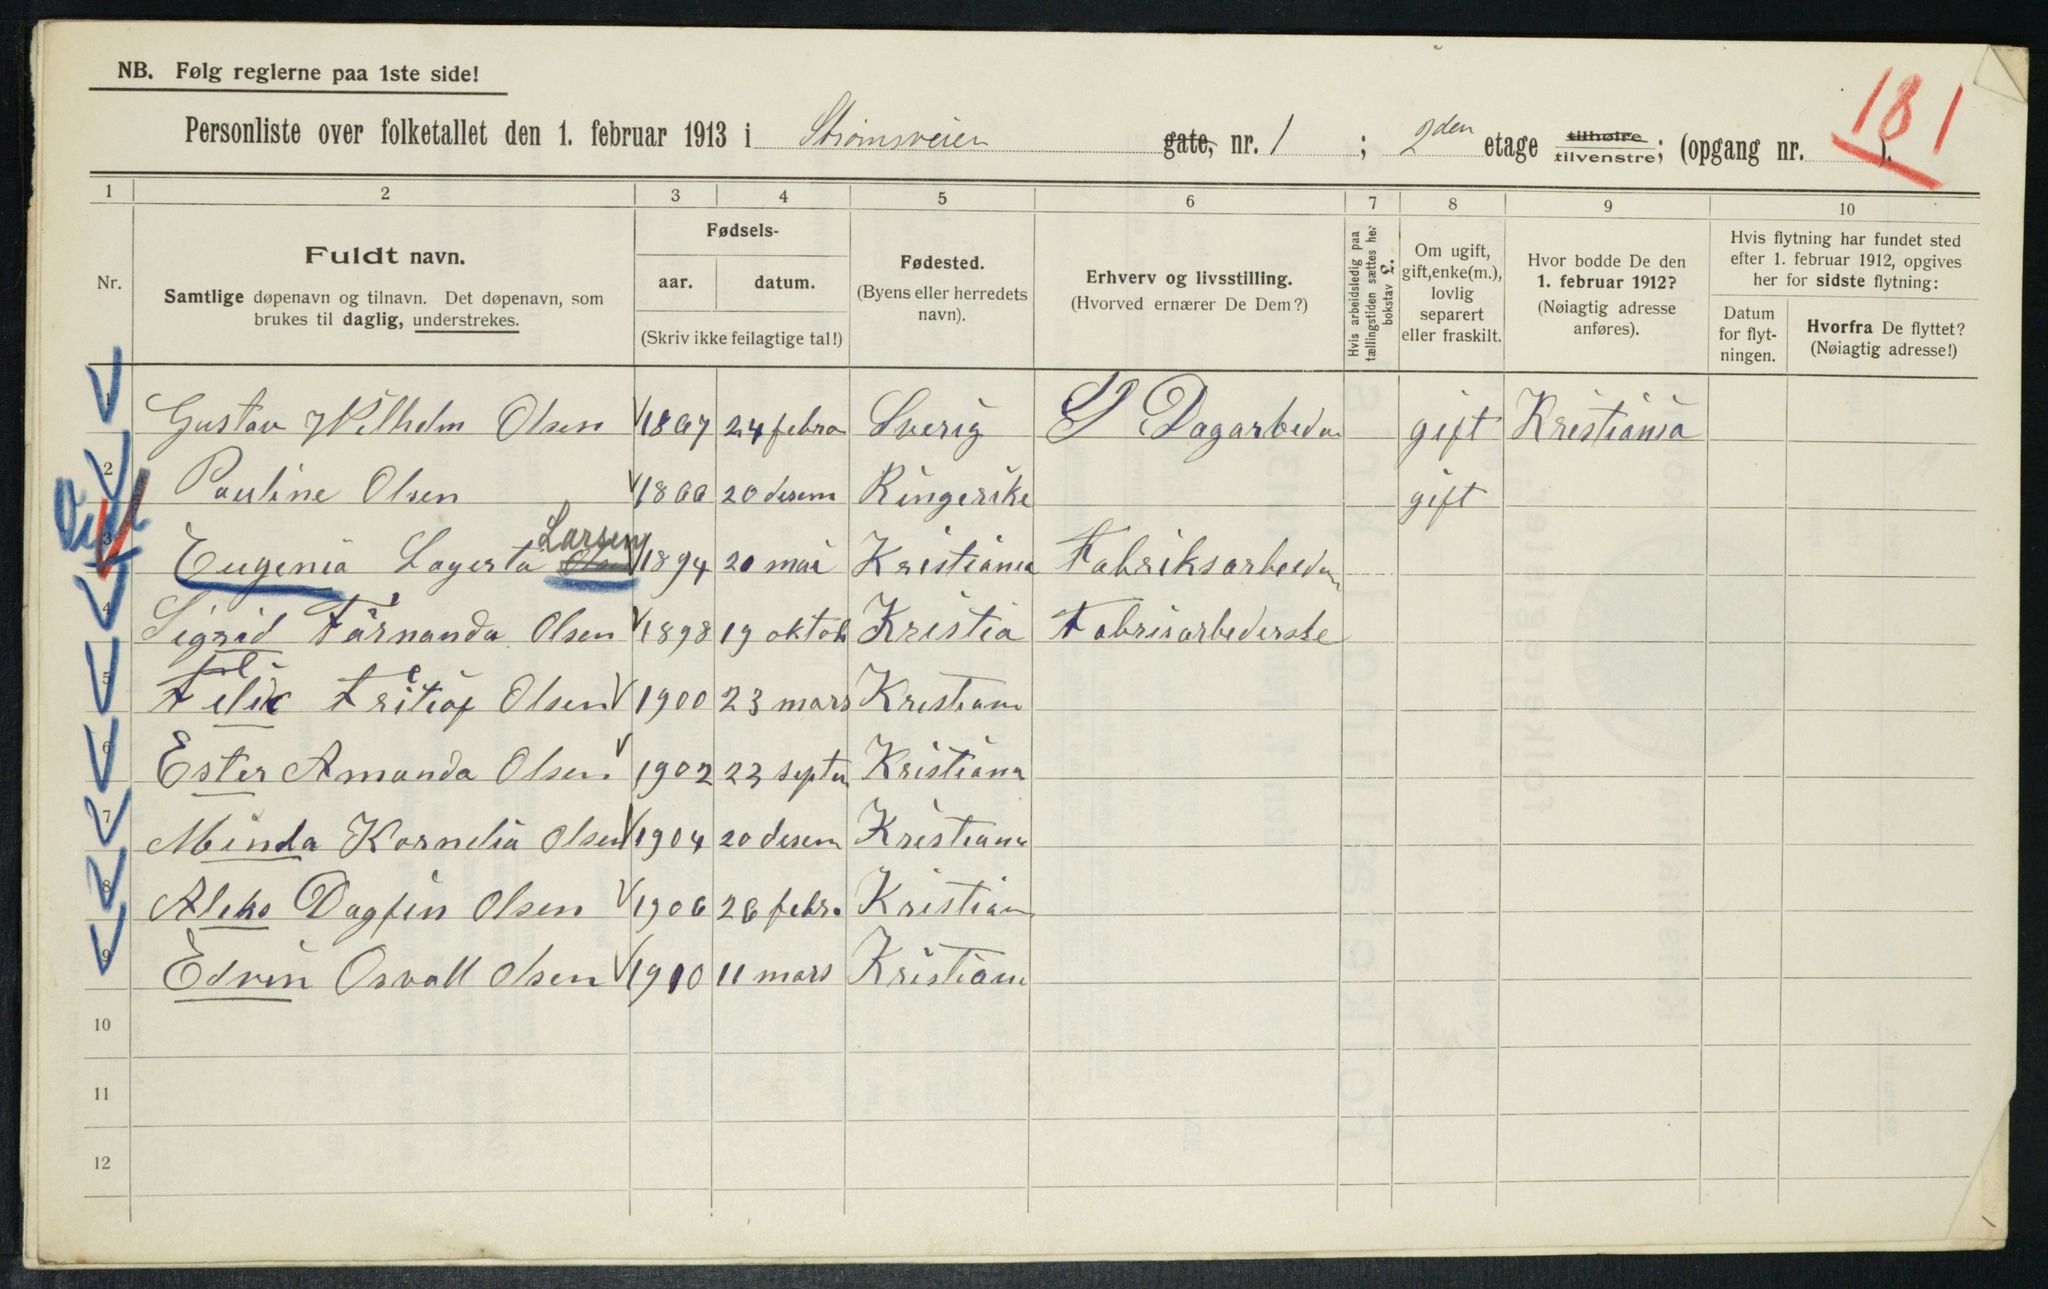 NB. Følg reglerne paa 1ste side!
181
Personliste over folketallet den 1. februar 1913 i Strømsveien gate, nr. 1 ; 2den etage tilhøire tilvenstre; (opgang nr. ).
1 2 3 4 5 6 7 8 9 10
Nr.
Fuldt navn.
Samtlige døpenavn og tilnavn. Det døpenavn, som
brukes til daglig, understrekes.
Fødsels-
aar. datum.
(Skriv ikke feilagtige tal!)
Fødested.
(Byens eller herredets
navn).
Erhverv og livsstilling.
(Hvorved ernærer De Dem?)
Hvis arbeidsledig paa
tællingstiden sættes her
bokstav L.
Om ugift,
gift, enke(m.),
lovlig
separert
eller fraskilt.
Hvor bodde De den
1. februar 1912?
(Nøiagtig adresse
anføres).
Hvis flytning har fundet sted
efter 1. februar 1912, opgives
her for sidste flytning:
Datum
for flyt-
ningen.
Hvorfra De flyttet?
(Nøiagtig adresse!)
1 Gustav Vilhelm Olsen 1867 24 febra Sverig Dagarbeder gift Kristiania
2 Pauline Olsen 1866 20 desem Ringerike gift
3 Eugenia Lagerta Olsen Larsen 1894 20 mai Kristiania Fabriksarbeider
4 Sigrid Farnanda Olsen 1898 19 oktob Kristia Fabrisarbederske
5 Felix Fritiof Olsen 1900 23 mars Kristian
6 Ester Amanda Olsen 1902 23 septe Kristiana
7 Minda Kornelia Olsen 1904 20 desem Kristiana
8 Aleks Dagfin Olsen 1906 26 febr. Kristian
9 Edvin Osvall Olsen 1910 11 mars Kristian
10
11
12